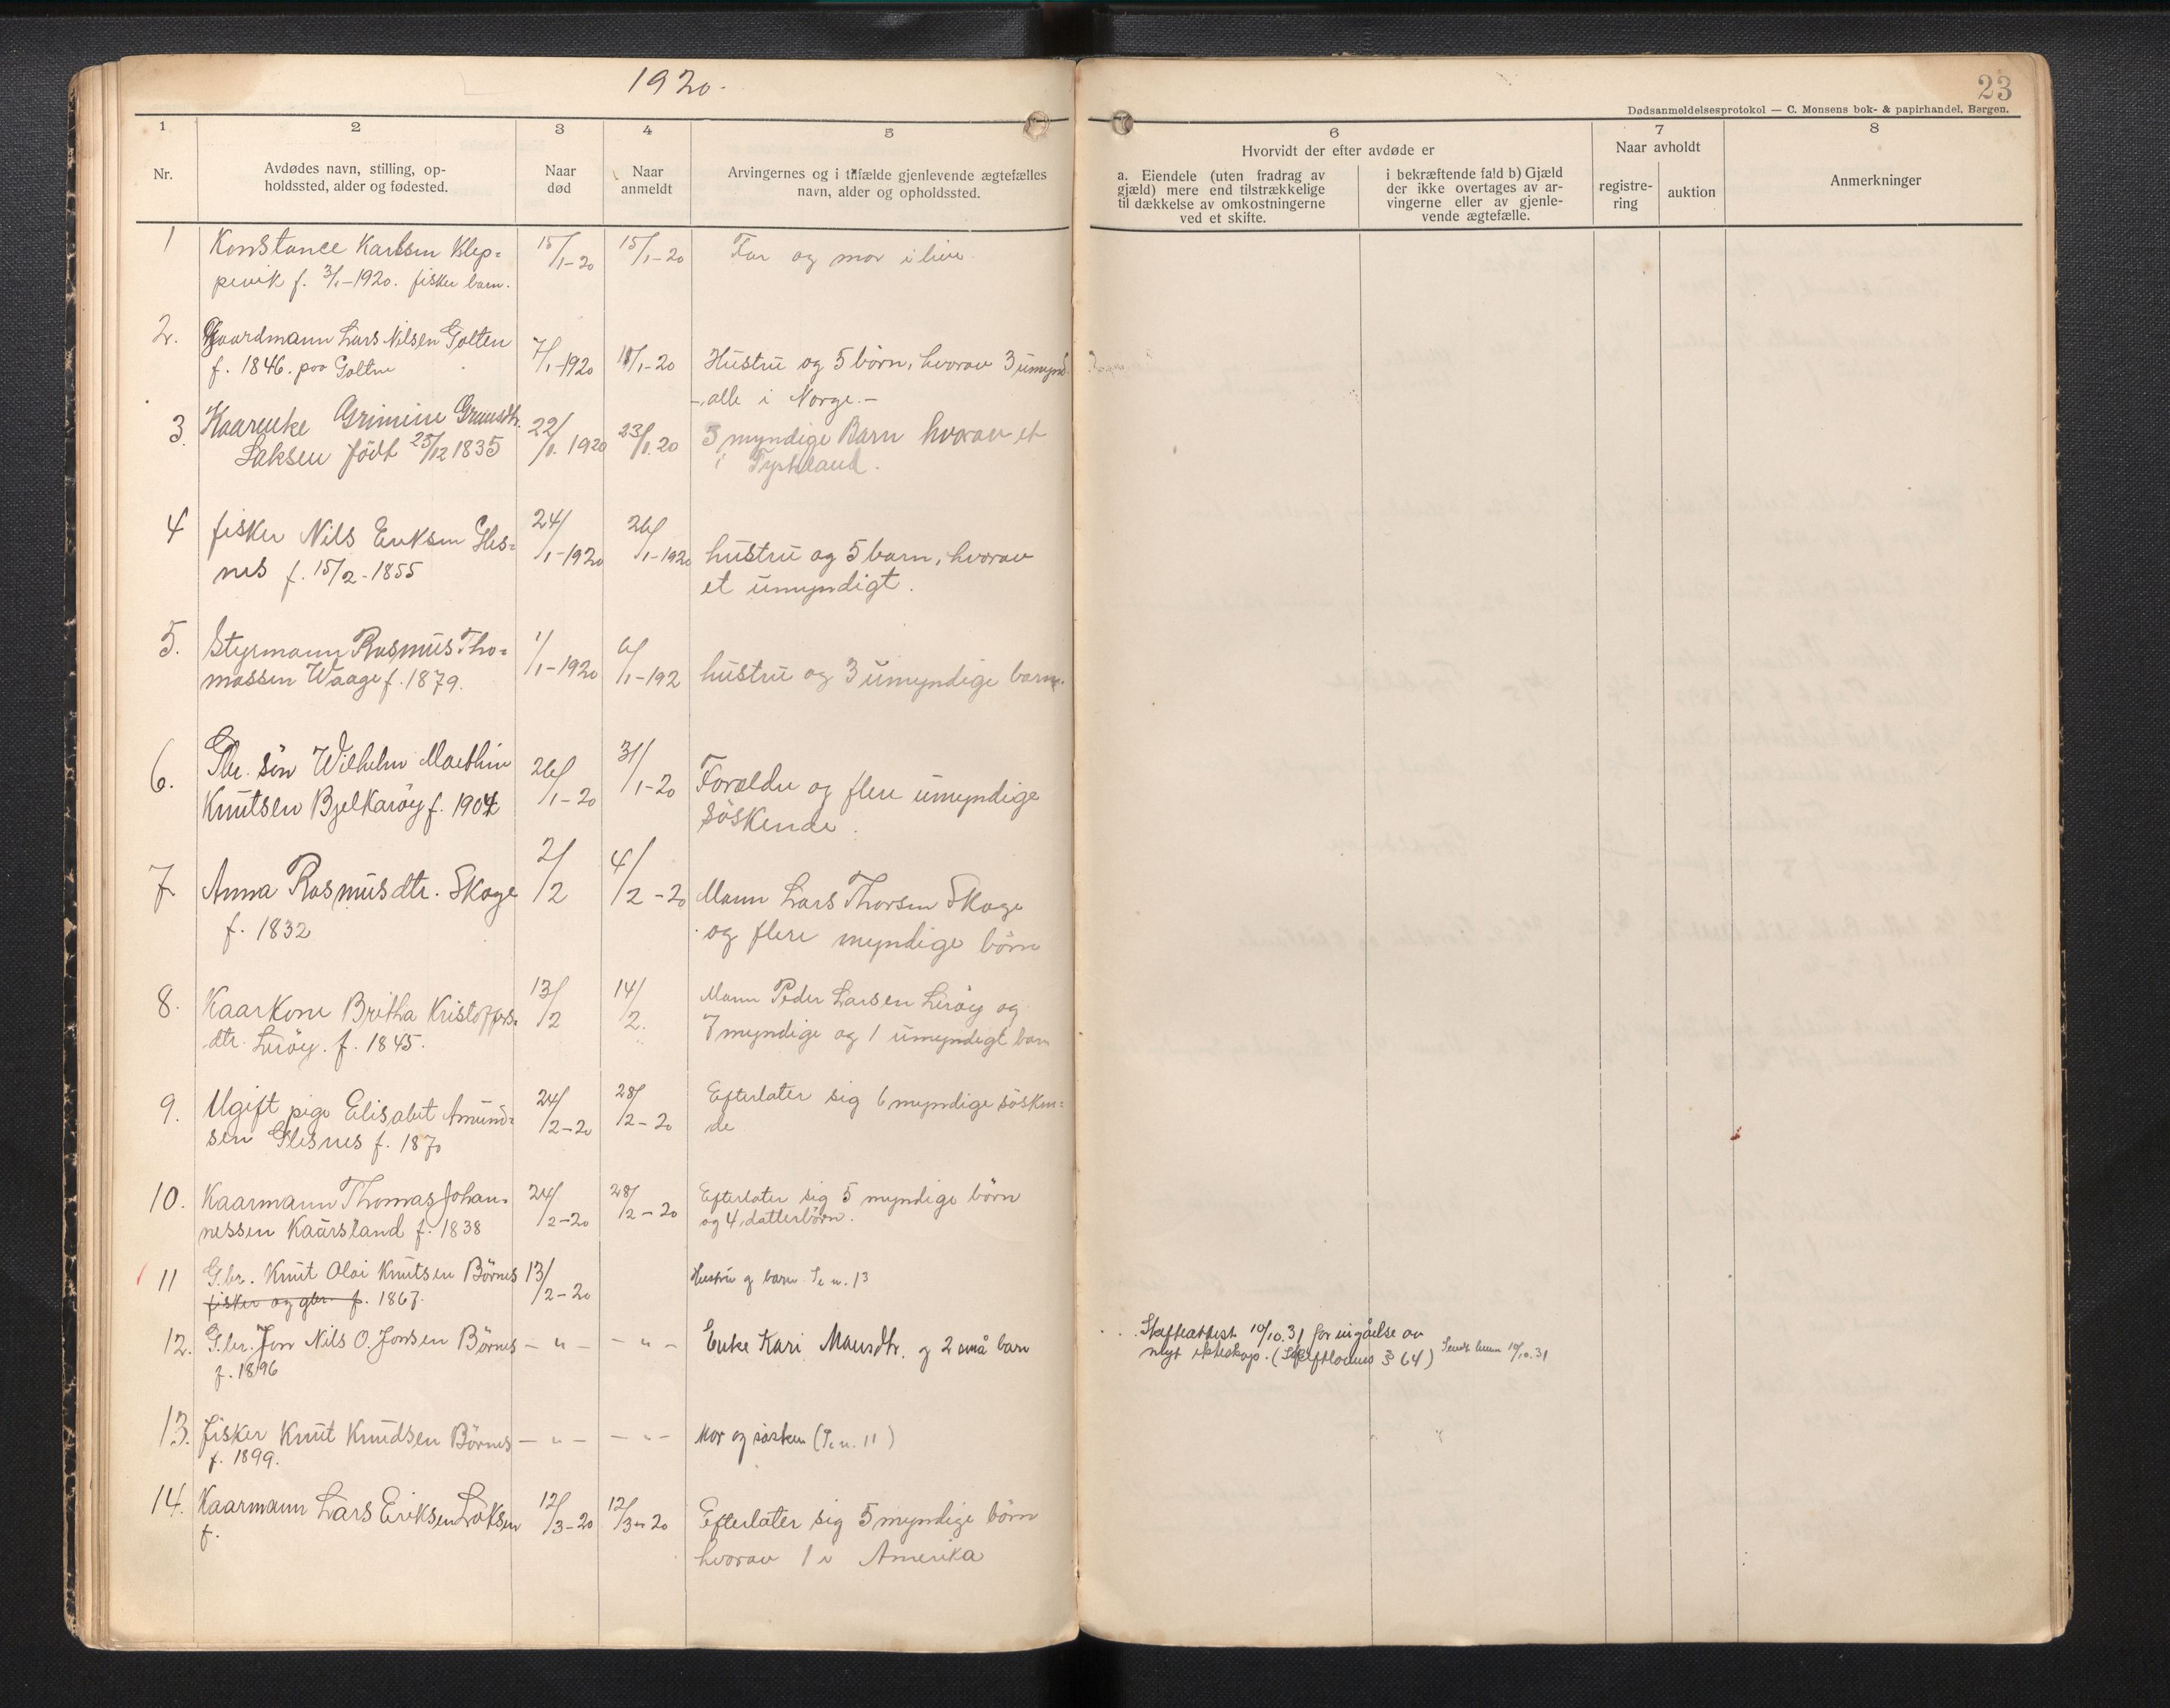 1920.
23
Dødsanmeldelsesprotokol — C. Monsens bok- & papirhandel, Bergen.
1
2
3
4
5
6
7
8
Nr.
Avdødes navn, stilling, op-
holdssted, alder og fødested.
Naar
død
Naar
anmeldt
Arvingernes og i tilfælde gjenlevende ægtefælles
navn, alder og opholdssted.
Hvorvidt der efter avdøde er
a. Eiendele (uten fradrag av
gjæld) mere end tilstrækkelige
til dækkelse av omkostningerne
ved et skifte.
i bekræftende fald b) Gjæld
der ikke overtages av ar-
vingerne eller av gjenle-
vende ægtefælle.
Naar avholdt
registre-
ring
auktion
Anmerkninger
1 Konstance Karlsen Klep= 15/1-20 15/1-20 Far og mor i live.
pevik f. 3/1-1920. fisker barn.
2. Gaardmann Lars Nilsen Golten 7/1-1920 18/1-20 Hustru og 5 börn, hvorav 3 umynd.
f. 1846. paa Golten -, alle i Norge.-
3. Kaarenke Grimine 22/1. 1920 23/1. 20 3 myndige Barn hvorav et
Laksen födt 25/12 1835 i Tyskland.
4 fisker Nils Eriksen Gles= 24/1-1920 26/1-1920 hustru og 5 barn, hvorav
nes f. 15/2-1855 et umyndigt.
5. Styrmann Rasmus Tho= 1/1-1920 6/1-192 hustru og 3 umyndige barn.
massen Waage f. 1879.
6. Gbr. sön Wilhelm Marthin 26/1-20 31/1-20 Forældre og flere umyndige
Knutsen Bjelkaröy f. 1904 söskende.
7. Anna Rasmusdtr. Skoge 2/2 4/2-20 Mann Lars Thorsen Skoge
f. 1832 og flere myndige börn
8. Kaarkone Britha Kristoffers= 13/2 14/2. Mann Peder Larsen Leröy og
dtr. Leröy. f. 1845. 7 myndige og 1 umyndigt barn
9. Ugift pige Elisabet Amund= 24/2-20 28/2-20 Efterlater sig 6 myndige sösken=
sen Glesnes f. 1870 de
10. Kaarmann Thomas Johan= 24/2-20 28/2-20 Efterlater sig 5 myndige börn
nessen Kaarsland f. 1838 og 4 datterbörn.
11 G.br. Knut Olai Knutsen Börnes 13/2-20 Hustru og barn Se n. 13
fisker og gbr. f. 1867.
12. G.br. Jon Nils O. Jonsen Börnes - " - - " - Enke Kari Mansdtr. og 2 små barn
f. 1896
Skifteattest 10/10.31 for ingåelse av
nyt ekteskap. (Skiftlovens § 64) Sendt 10/10.31
13. fisker Knut Knudsen Börnes - " - - " - Mor og sösken (Se n. 11)
f. 1899.
14. Kaarmann Lars Eriksen Loksen 12/3-20 12/3-20 Efterlater sig 5 myndige börn
f. hvorav 1 i Amerika